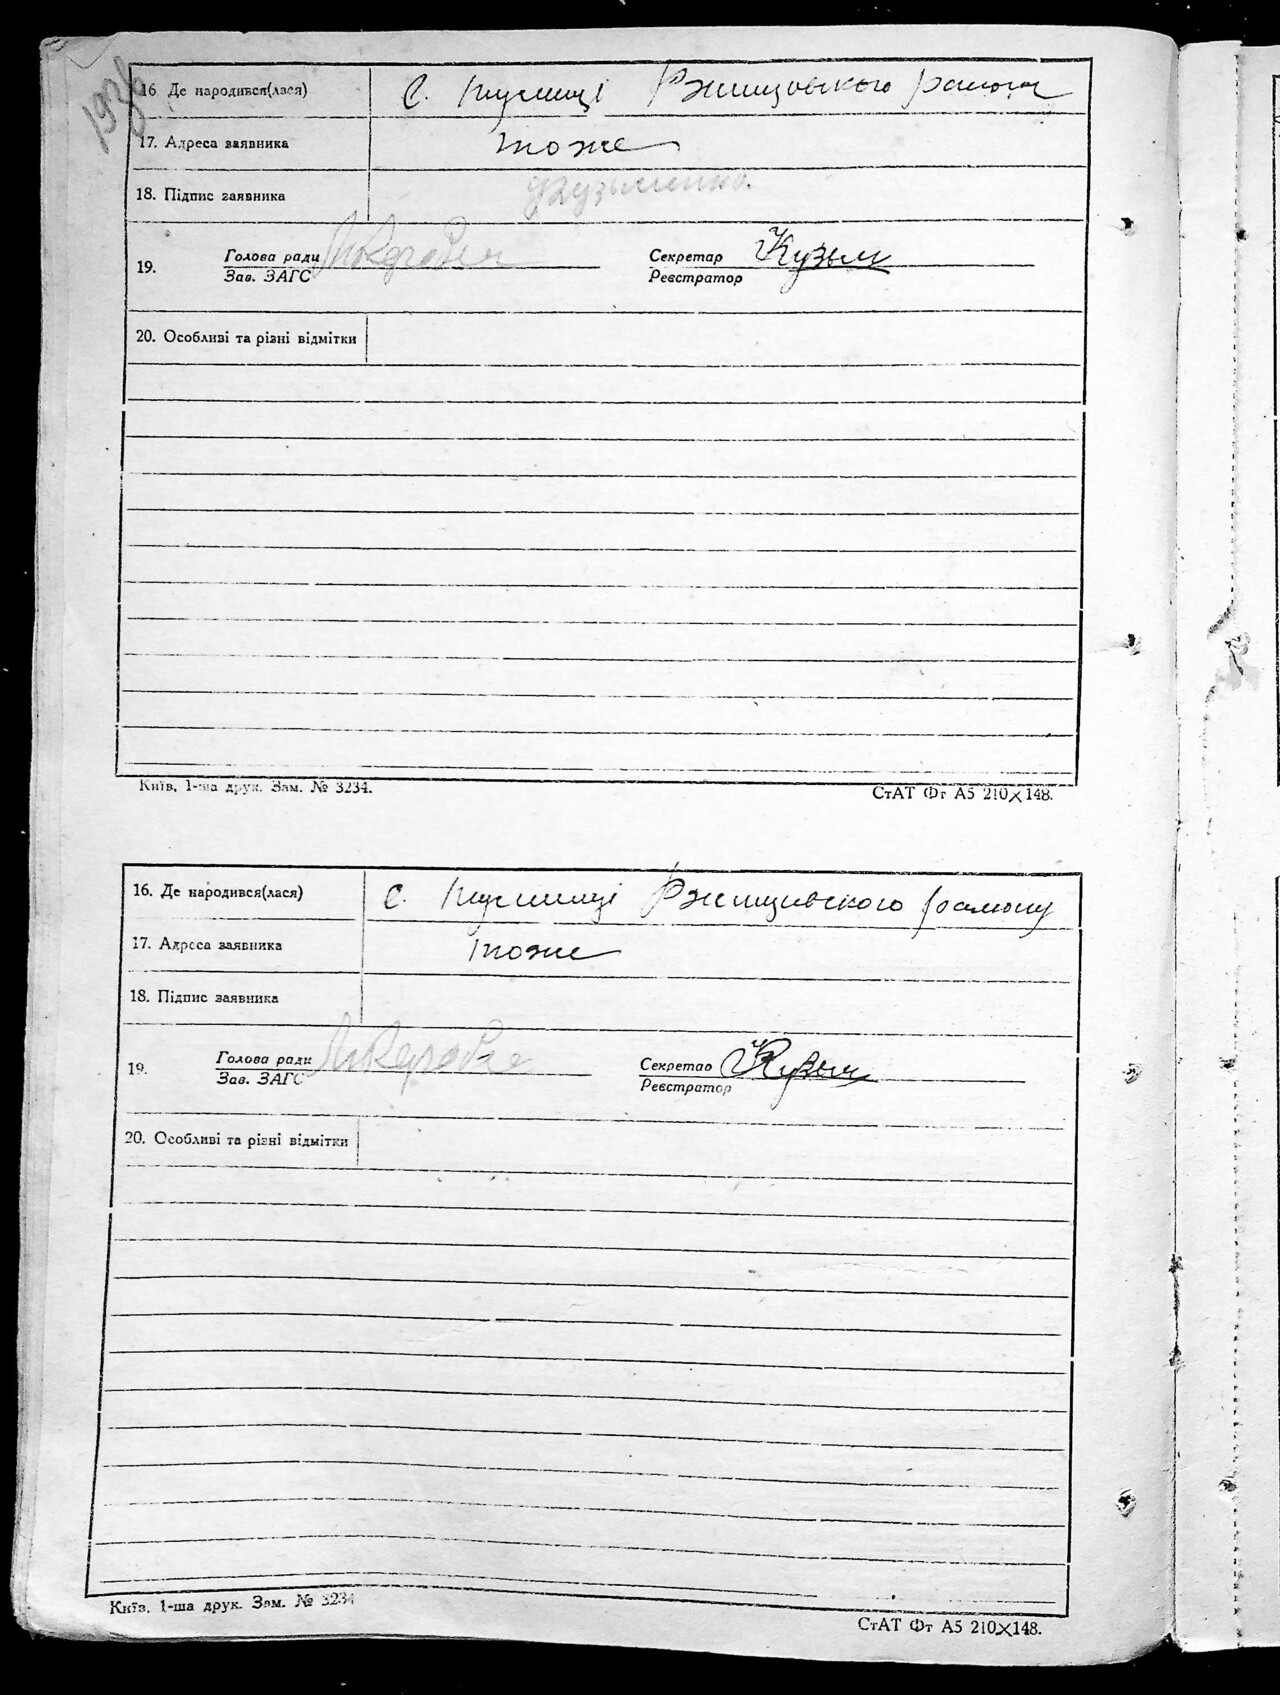 193
16. Де народився(лася) с. Пуслиці Ржищовського району
17. Адреса заявника тоже
18. Підпис заявника Кузьменко.
19. Голова ради Секретар Кузьм
Зав. ЗАГС Реєстратор
20. Особливі та різні відмітки
Київ, 1-ша друк. Зам. № 3234. СтАТ Фт А5 210×148.
16. Де народився(лася) с. Пуслиці Ржищивського району
17. Адреса заявника тоже
18. Підпис заявника
19. Голова ради Секретар Кузьм
Зав. ЗАГС Реєстратор
20. Особливі та різні відмітки
Київ, 1-ша друк. Зам. № 3234 СтАТ Фт А5 210×148.